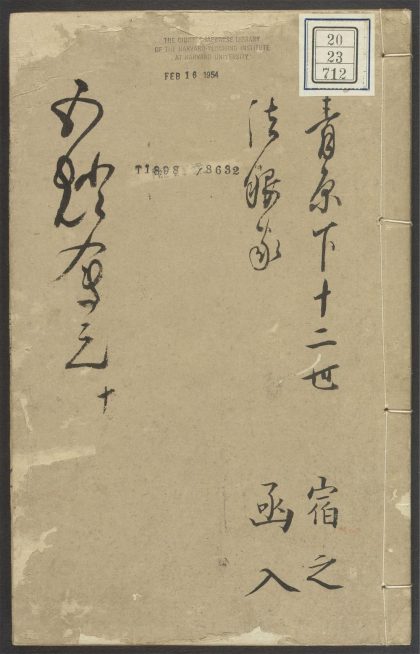 THE CHINESE-JAPANESE LIBRARY
OF THE HARVARD-YENCHING INSTITUTE
AT HARVARD UNIVERSITY
FEB 16 1954
20
23
712
T1898 /3632
青原下十二世
宿之
法眼家
函入
五燈會元 十